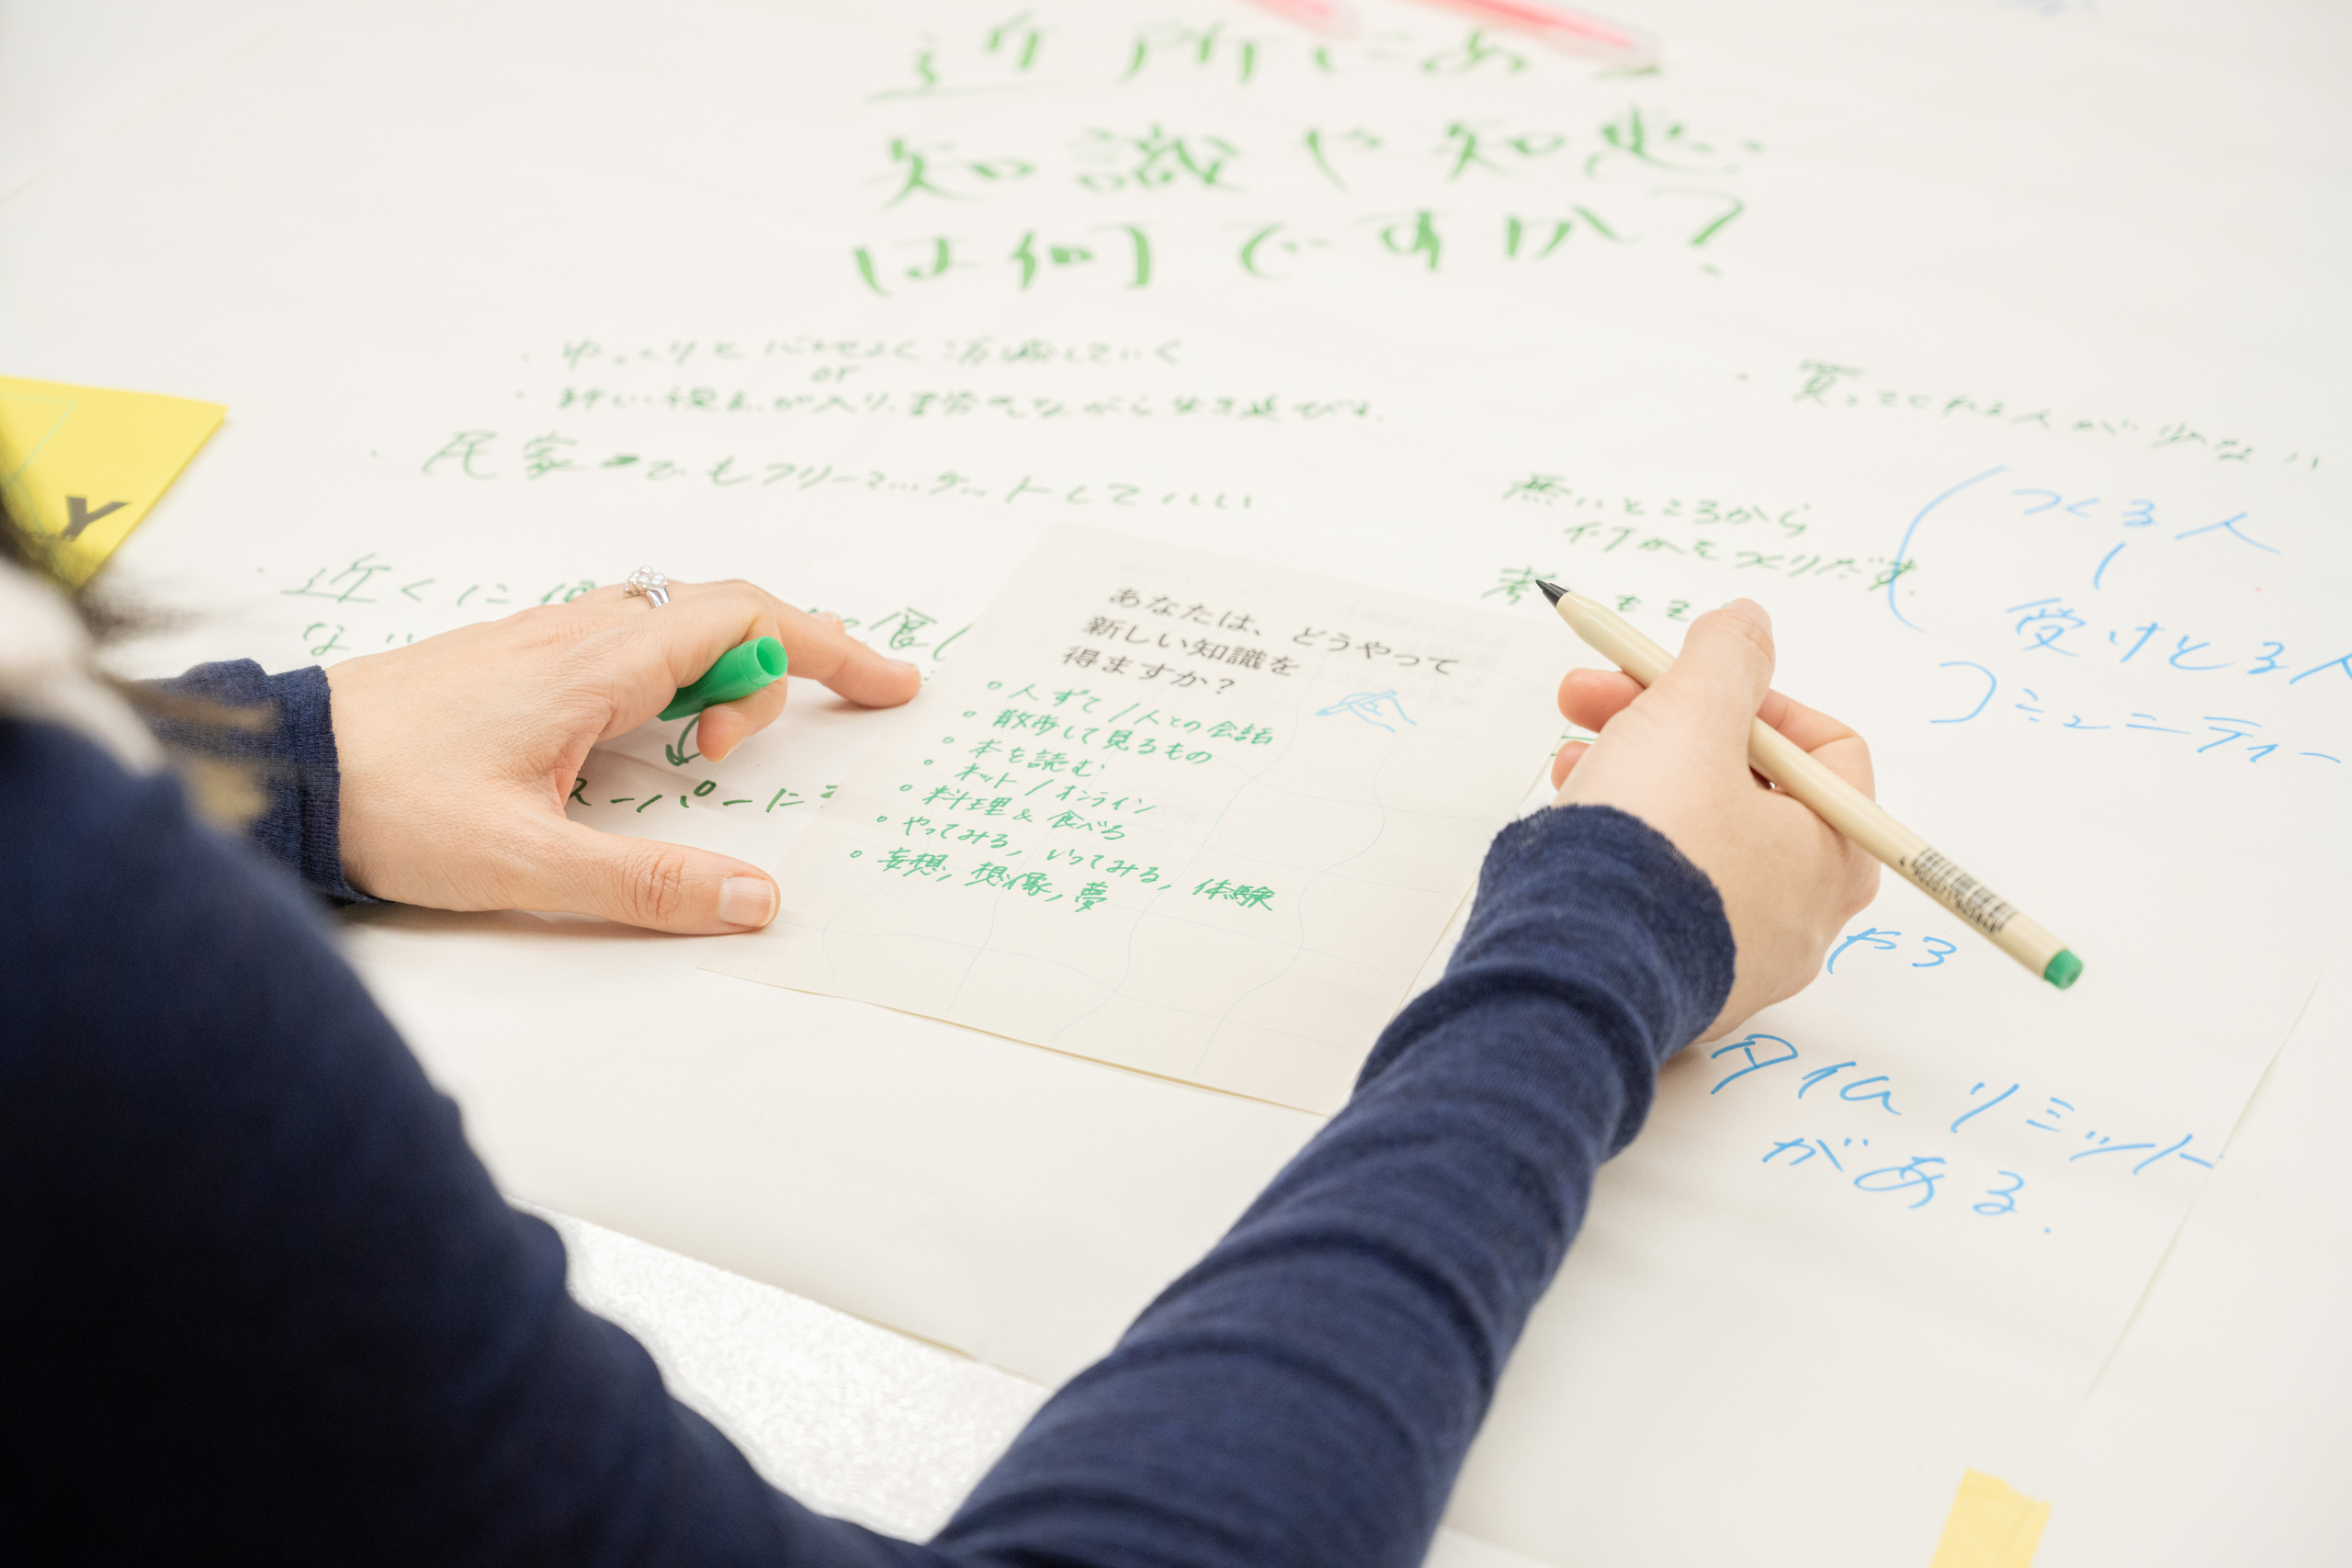 近所にある
知識や知恵
は何ですか?
・ゆっくりと
or
・新しい視点が入り ながら生き延びる.
・買ってくれる人が少ない
・民家でもフリーマーケットしていい
無いところから
何かをつくりだす.
考
つくる人
受けとる人
コミュニティー
・近くに
ない
スーパーに
あなたは、どうやって
新しい知識を
得ますか?
○人ずて/人との会話
○散歩して見るもの
○本を読む
○ネット/オンライン
○料理&食べる
○やってみる, いってみる, 体験
○妄想, 想像, 夢
やる
タイムリミット
がある.
Y